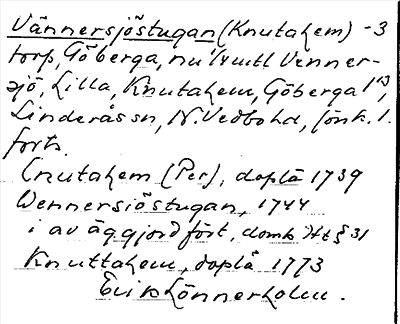 Vännersjöstugan (Knutahem) -3
torp, Göberga, nu 1/4 mtl Venner-
sjö, Lilla, Knutahem, Göberga 1(2),
Linderås sn, N. Vedbo hd, Jönk. l.
forts.
Cnutahem (Per), doplä 1739
Wennersiöstugan, 1744
i av äg. gjord fört, domb Ht § 31
Knuttahem, doplä 1773
Erik Lönnerholm.